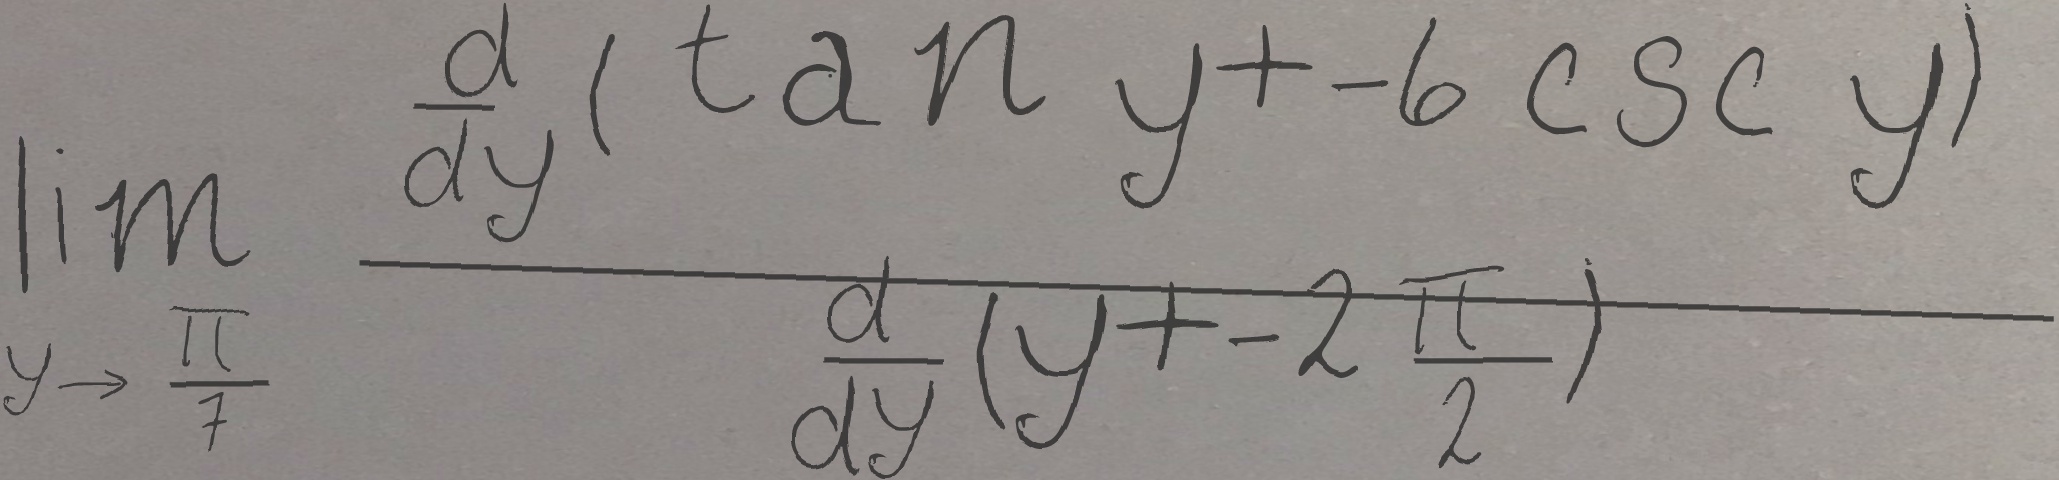 \lim_{y \to \frac{\pi}{7}} \frac{\frac{d}{dy}(\tan y + -6 \csc y)}{\frac{d}{dy}(y + -2 \frac{\pi}{2})}